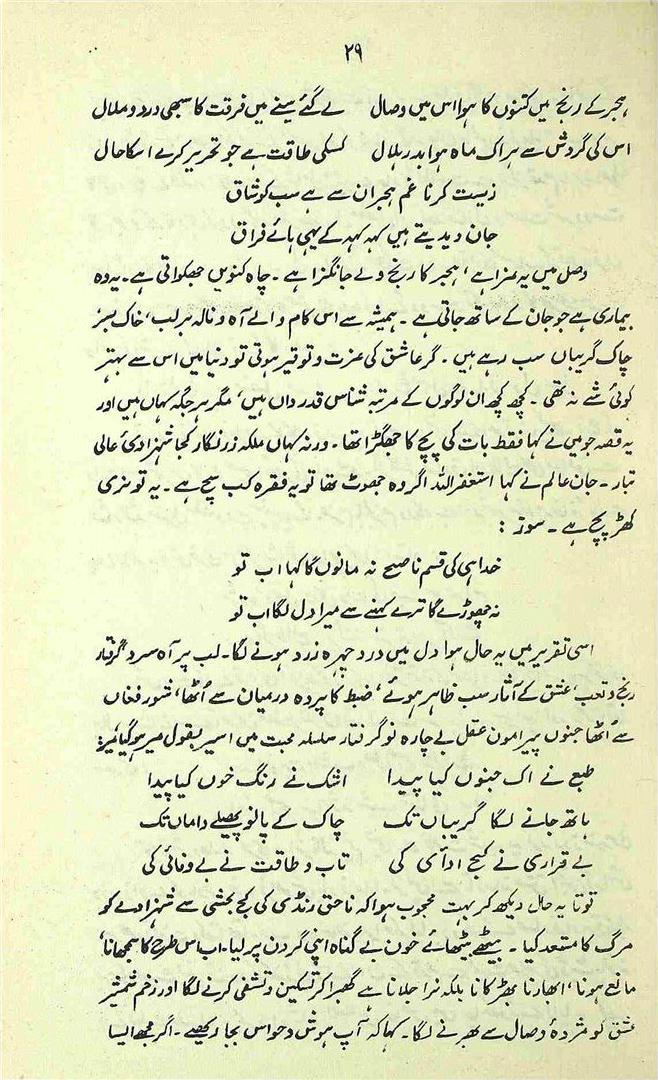 ۲۹
ہجر کے رنج میں کتنوں کا ہوا اس میں وصال لے گئے سینے میں فرقت کا سبھی درد و ملال
اس کی گردش سے ہر اک ماہ ہوا بدر ہلال کسکی طاقت ہے جو تحریر کرے اسکا حال
زیست کرنا غم ہجراں سے ہے سب کو شاق
جان دیدیتے ہیں کہہ کہہ کے یہی ہائے فراق
وصل میں یہ مزا ہے، ہجر کا رنج ولے جانگزا ہے۔ چاہ کنویں جھکواتی ہے۔ یہ وہ
بیماری ہے جو جان کے ساتھ جاتی ہے۔ ہمیشہ سے اس کام والے آہ و نالہ بر لب، خاک بسر
چاک گریباں سب رہے ہیں۔ گر عاشق کی عزت و توقیر ہوتی تو دنیا میں اس سے بہتر
کوئی شے نہ تھی۔ کچھ کچھ ان لوگوں کے مرتبہ شناس قدرداں ہیں، مگر ہر جگہ کہاں ہیں اور
یہ قصہ جو میں نے کہا فقط بات کی پچ کا جھگڑا تھا۔ ورنہ کہاں ملکہ زرنگار کجا شہزادیٔ عالی
تبار۔ جان عالم نے کہا استغفر اللہ اگر وہ جھوٹ تھا تو یہ فقرہ کب سچ ہے۔ یہ تو نری
کھڑ پچ ہے۔ سوز :
خدا ہی کی قسم ناصح نہ مانوں گا کہا اب تو
نہ چھوڑے گا ترے کہنے سے میرا دل لگا اب تو
اسی تقریر میں یہ حال ہوا دل میں درد چہرہ زرد ہونے لگا۔ لب پر آہ سرد گرفتار
رنج و تعب، عشق کے آثار سب ظاہر ہوئے، ضبط کا پردہ درمیان سے اُٹھا، شور فغاں
سے اُٹھا جنوں پیرامون عقل بے چارہ نو گرفتار سلسلہ محبت میں اسیر بقول میر ہو گیا میرؔ:
طبع نے اک جنوں کیا پیدا اشک نے رنگ خوں کیا پیدا
ہاتھ جانے لگا گریباں تک چاک کے پانو پھیلے داماں تک
بے قراری نے کج ادائی کی تاب و طاقت نے بے وفائی کی
توتا یہ حال دیکھ کر بہت محجوب ہوا کہ ناحق رنڈی کی کج بحثی سے شہزادے کو
مرگ کا مستعد کیا۔ بیٹھے بٹھائے خون بے گناہ اپنی گردن پر لیا۔ اب اس طرح کا سمجھانا،
مانع ہونا، ابھارنا بھڑکانا بلکہ نرا جلانا ہے گھبرا کر تسکین و تشفی کرنے لگا اور زخم شمشیر
عشق کو مژدۂ وصال سے بھرنے لگا۔ کہا کہ آپ ہوش و حواس بجا رکھیے۔ اگر مجھے ایسا